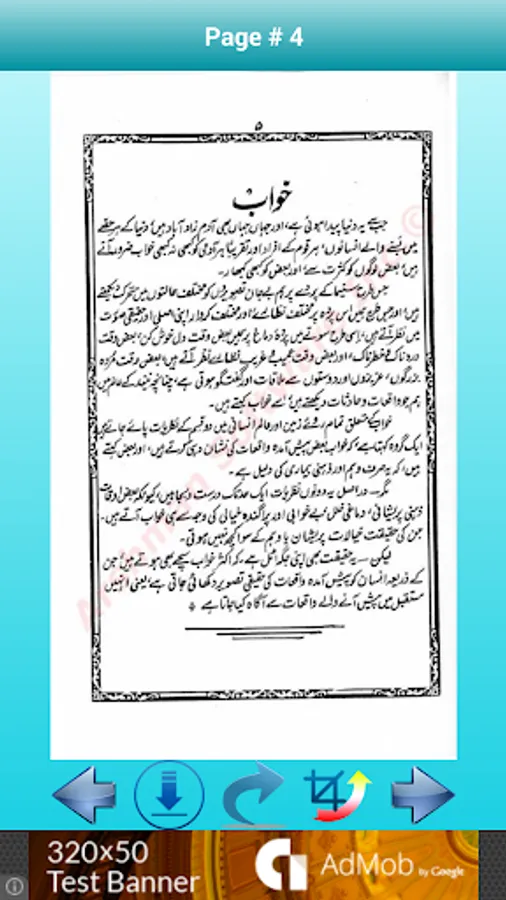 Page # 4
۵
خواب
جب سے یہ دنیا پیدا ہوئی ہے، اور جہاں جہاں بھی آدم زاد آباد ہیں، دنیا کے ہر حلقے
میں بسنے والے انسانوں، ہر قوم کے افراد اور تقریباً ہر آدمی کو کبھی نہ کبھی خواب ضرور آتے
ہیں، بعض لوگوں کو کثرت سے، اور بعض کو کبھی کبھار۔
جس طرح سنیما کے پردے پر ہم بے جان تصویروں کو مختلف حالتوں میں متحرک دیکھتے
ہیں، اور جس طرح ہمیں اس پردہ پر مختلف نظارے، اور مختلف کردار اپنی اصلی اور حقیقی صورت
میں نظر آتے ہیں، اسی طرح سوتے میں پردۂ دماغ پر ہمیں بعض وقت دل خوش کن، بعض وقت
دردناک و خطرناک، اور بعض وقت عجیب و غریب نظارے نظر آتے ہیں، بعض وقت مردہ
بزرگوں، عزیزوں اور دوستوں سے ملاقات اور گفتگو ہوتی ہے، چنانچہ نیند کے عالم میں
ہم جو واقعات و حادثات دیکھتے ہیں، اسے خواب کہتے ہیں۔
خواب کے متعلق تمام روئے زمین اور عالم انسانی میں دو قسم کے نظریات پائے جاتے ہیں
ایک گروہ کہتا ہے، کہ خواب بعض پیش آمدہ واقعات کی نشان دہی کرتے ہیں، اور بعض کہتے
ہیں، کہ یہ صرف وہم اور ذہنی بیماری کی دلیل ہے۔
مگر — دراصل یہ دونوں نظریات ایک حد تک درست و بجا ہیں، کیونکہ بعض اوقات
ذہنی پریشانی، دماغی خلل، بے خوابی اور پراگندہ خیالی کی وجہ سے ہی خواب آتے ہیں۔
جن کی حقیقت خیالات پریشان یا وہم کے سوا کچھ نہیں ہوتی۔
لیکن — یہ حقیقت بھی اپنی جگہ اٹل ہے، کہ اکثر خواب سچے بھی ہوتے ہیں، جن
کے ذریعہ انسان کو پیش آمدہ واقعات کی حقیقی تصویر دکھائی جاتی ہے، یعنی انہیں
مستقبل میں پیش آنے والے واقعات سے آگاہ کیا جاتا ہے
320×50
Test Banner
AdMob by Google